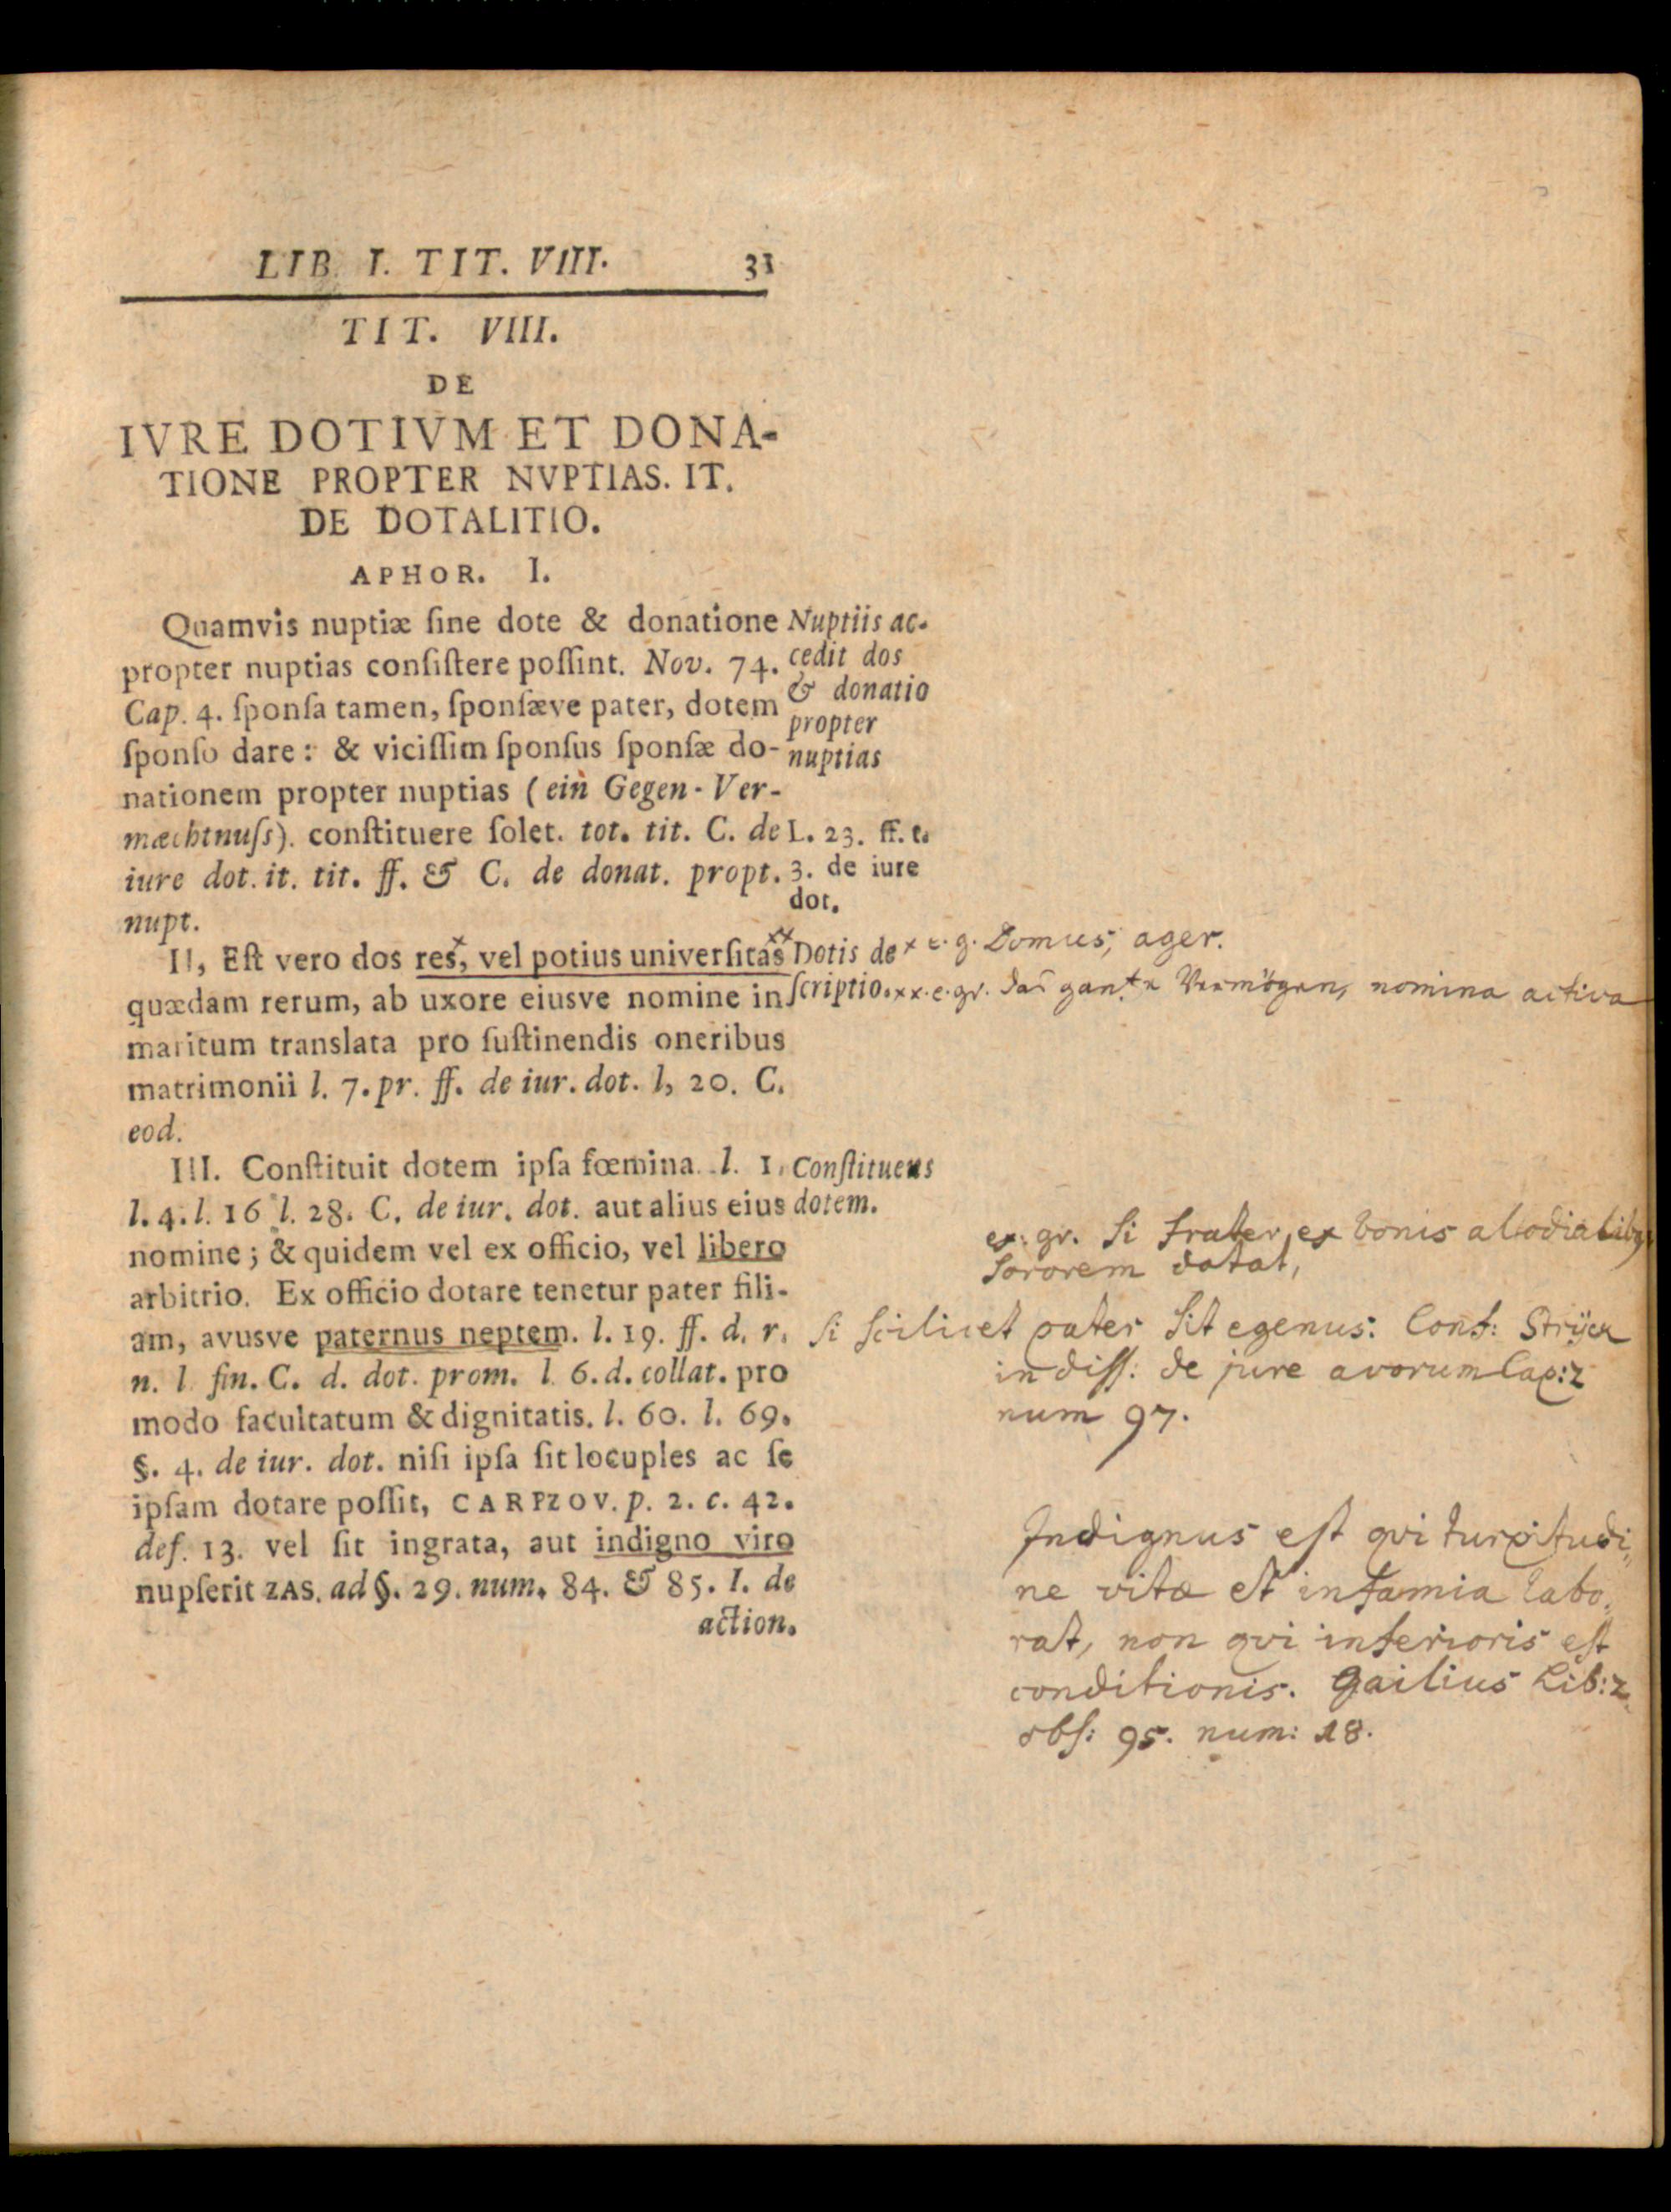 LIB. I. TIT. VIII. 31
TIT. VIII.
DE
IVRE DOTIVM ET DONA-
TIONE PROPTER NVPTIAS. IT.
DE DOTALITIO.
APHOR. I.
Quamvis nuptiæ ſine dote & donatione
propter nuptias conſiſtere poſſint. Nov. 74.
Cap. 4. ſponſa tamen, ſponſæve pater, dotem
ſponſo dare: & viciſſim ſponſus ſponſæ do-
nationem propter nuptias (ein Gegen-Ver-
mæchtnuſs). conſtituere ſolet. tot. tit. C. de
iure dot. it. tit. ff. & C. de donat. propt.
nupt.
Nuptiis ac-
cedit dos
& donatio
propter
nuptias
L. 23. ff. t.
3. de iure
dot.
II, Eſt vero dos res, vel potius univerſitas
quædam rerum, ab uxore eiusve nomine in
maritum translata pro ſuſtinendis oneribus
matrimonii l. 7. pr. ff. de iur. dot. l, 20. C.
eod.
Dotis de
ſcriptio.
x e. g. Domus, ager.
xx. e. gr. das gantze Vermögen, nomina activa
III. Conſtituit dotem ipſa fœmina. l. 1.
l. 4. l. 16 l. 28. C. de iur. dot. aut alius eius
nomine; & quidem vel ex officio, vel libero
arbitrio. Ex officio dotare tenetur pater fili-
am, avusve paternus neptem. l. 19. ff. d. r.
n. l fin. C. d. dot. prom. l. 6. d. collat. pro
modo facultatum & dignitatis. l. 60. l. 69.
§. 4. de iur. dot. niſi ipſa ſit locuples ac ſe
ipſam dotare poſſit, CARPZOV. p. 2. c. 42.
def. 13. vel ſit ingrata, aut indigno viro
nupſerit ZAS. ad §. 29. num. 84. & 85. I. de
action.
Conſtituens
dotem.
ex: gr. Si frater ex bonis alodialibq
Sororem dotat,
Si ſcilicet pater Sit egenus: Conf: Strÿck
in diſſ: de jure avorum Cap: 2
num 97.
Indignus eſt qvi turpitudi„
ne vitæ et infamia labo„
rat, non qvi inferioris eſt
conditionis. Gailius Lib: 2
obſ: 95. num: 18.